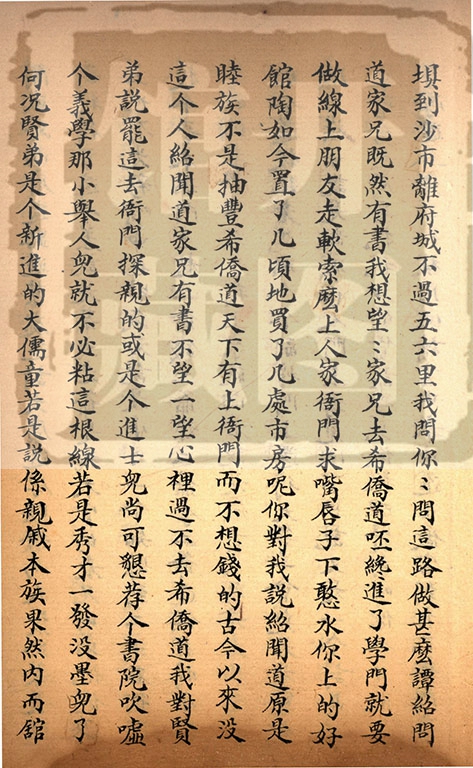 埧到沙市離府城不過五六里我問你〻問這路做甚麽譚紹聞
道家兄既然有書我想望〻家兄去希僑道呸纔進了學門就要
做線上朋友走軟索麽上人家衙門求嘴唇子下憨水你上的好
館陶如今置了几頃地買了几處市房呢你對我說紹聞道原是
睦族不是抽豐希僑道天下有上衙門而不想錢的古今以來没
這个人紹聞道家兄有書不望一望心裡過不去希僑道我對賢
弟説罷這去衙門探親的或是个進士兒尚可懇荐个書院吹噓
个義學那小舉人兒就不必粘這根線若是秀才一發没墨兒了
何况賢弟是个新進的大儒童若是説係親戚本族果然内而舘